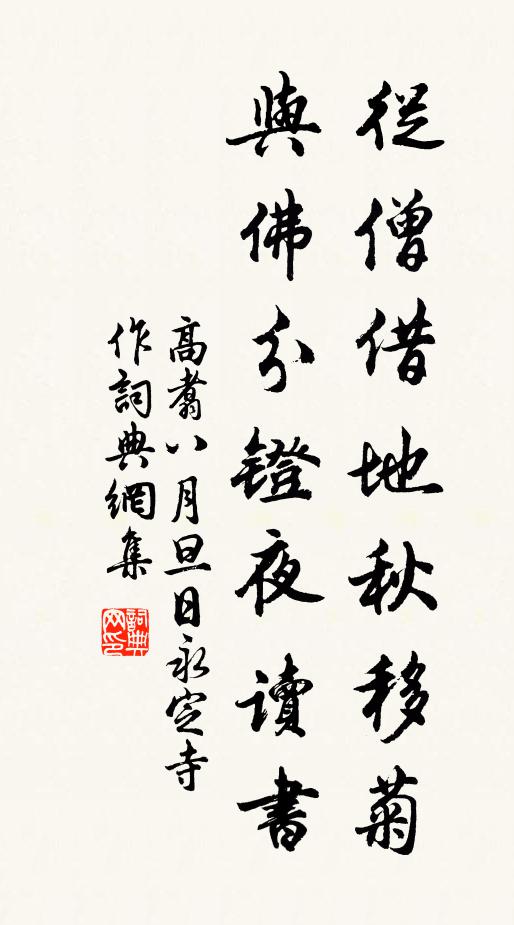 從僧借地秋移菊
與佛分鐙夜讀書
高翥八月旦日永定寺
作詞典網集
詞典網印